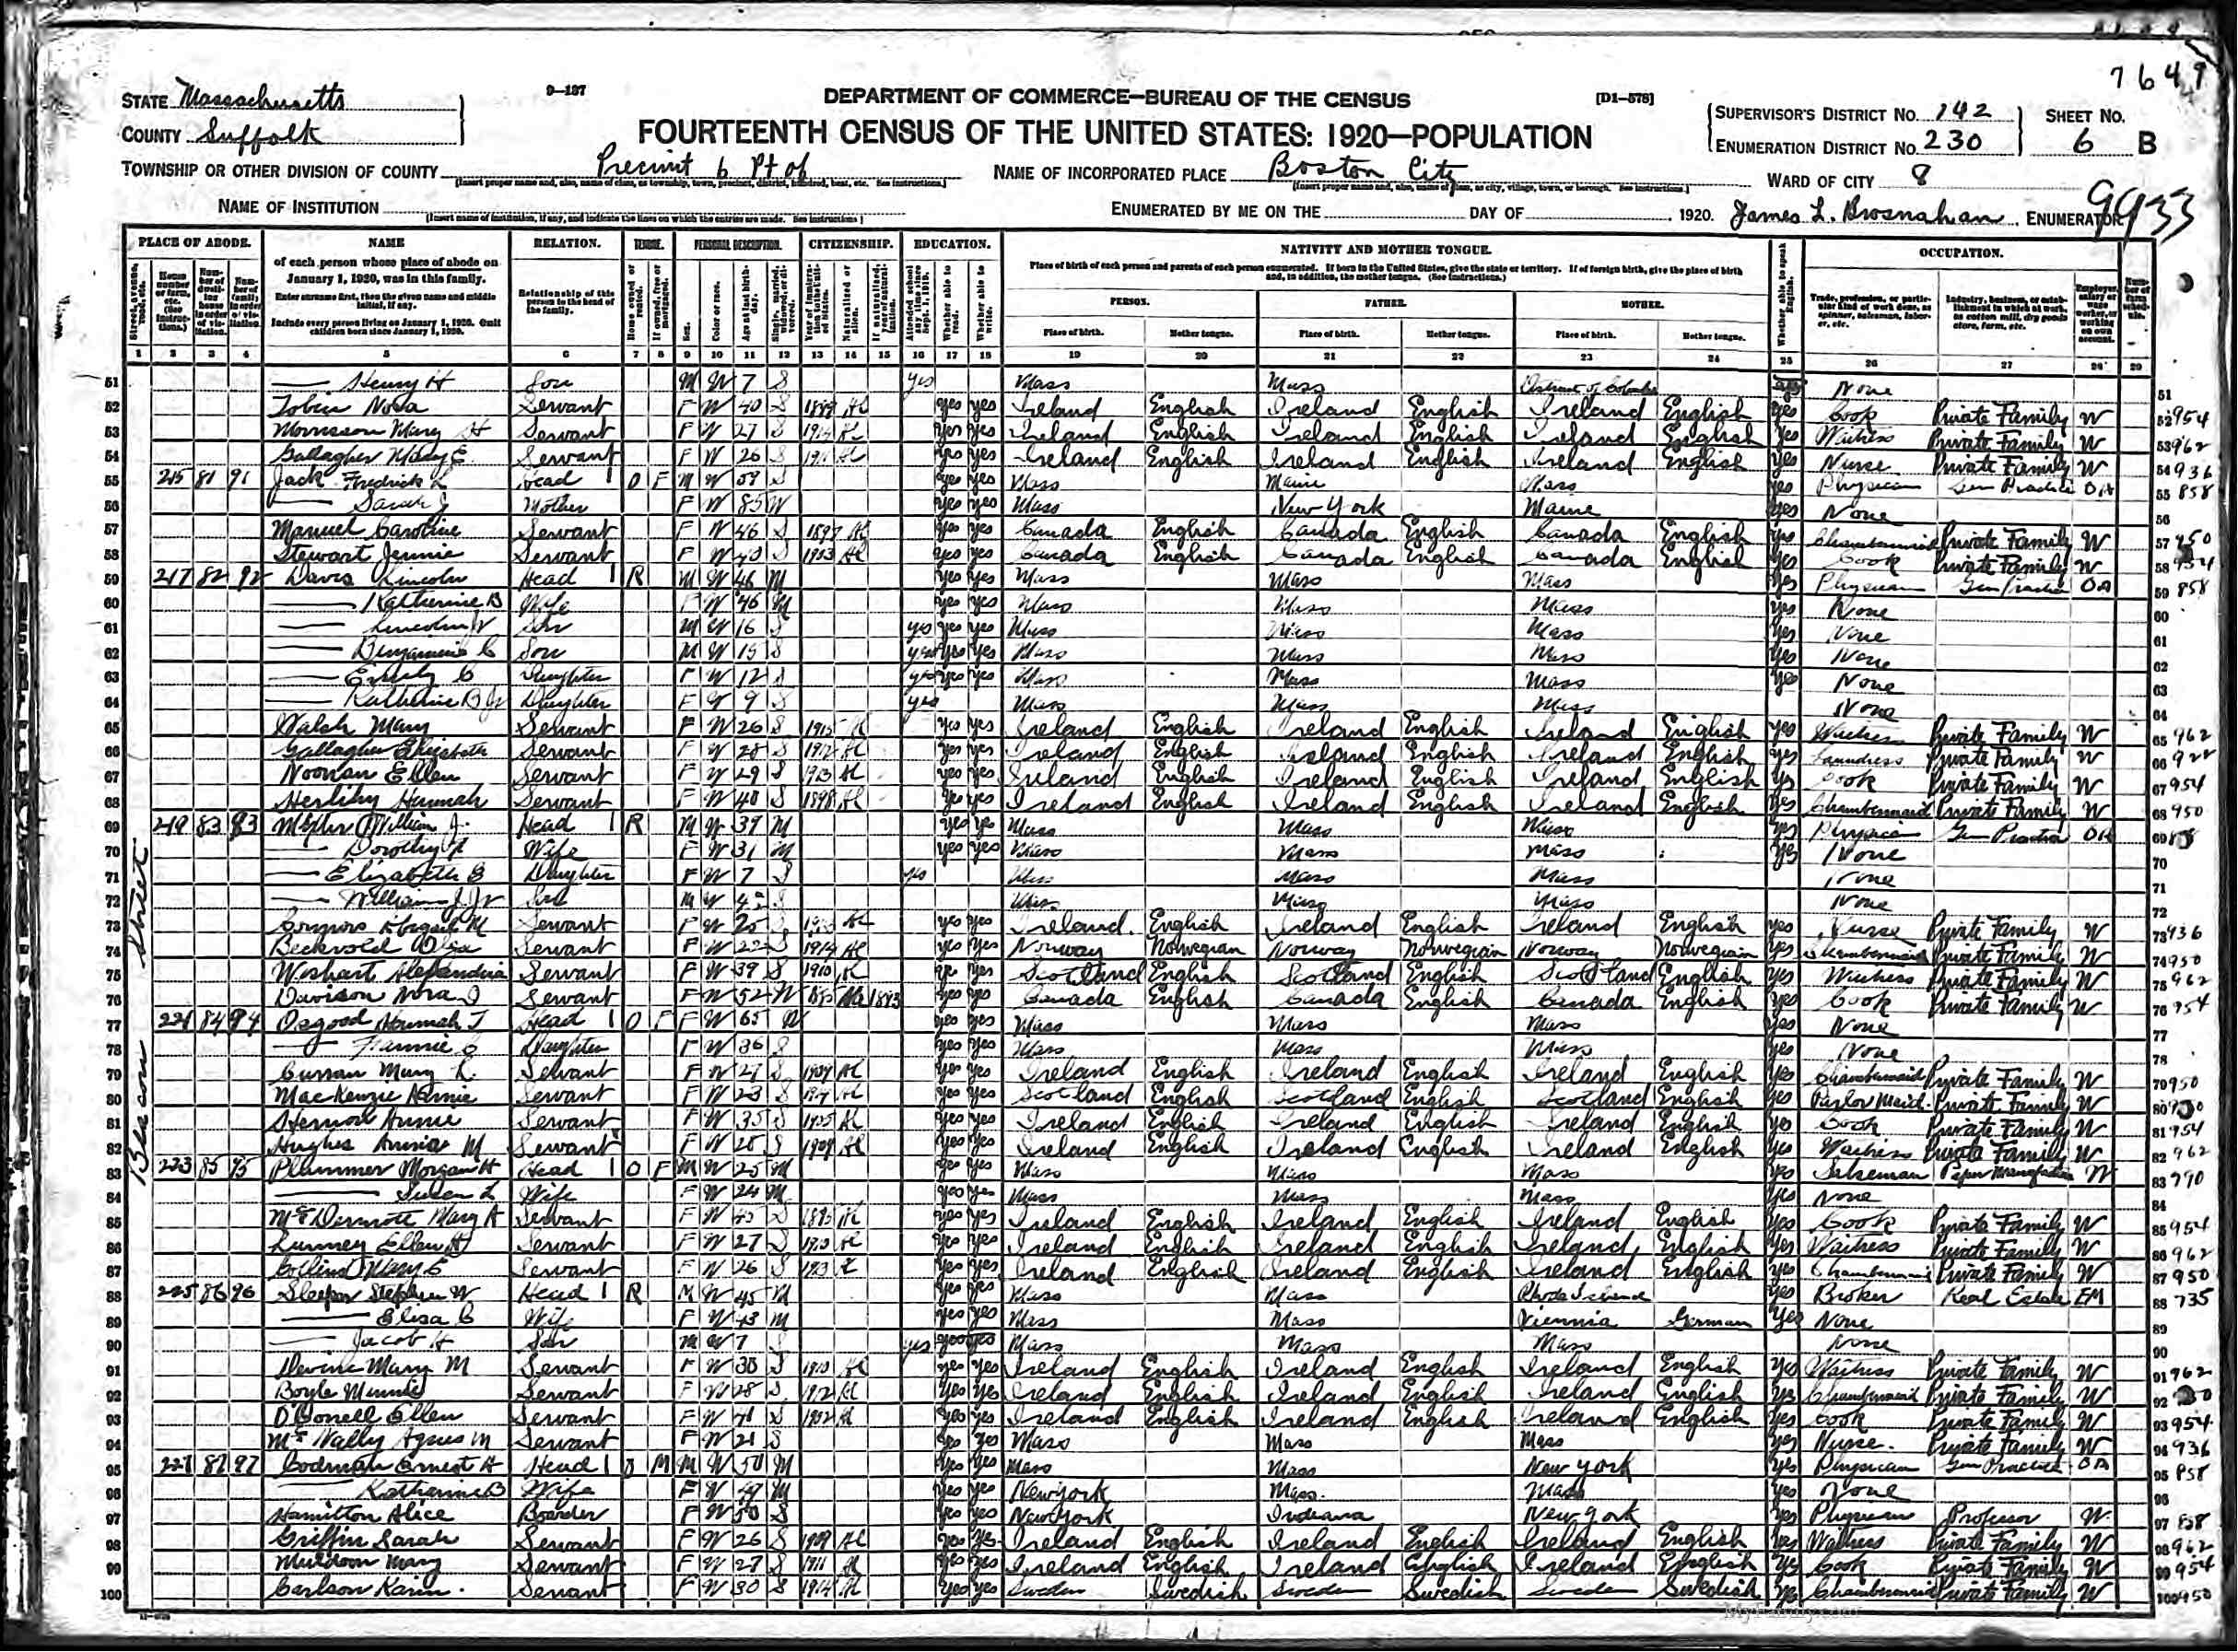 7649
STATE Massachusetts
COUNTY Suffolk
9-137
DEPARTMENT OF COMMERCE—BUREAU OF THE CENSUS
[D1-578]
FOURTEENTH CENSUS OF THE UNITED STATES: 1920—POPULATION
SUPERVISOR'S DISTRICT No. 142
ENUMERATION DISTRICT No. 230
SHEET No. 6 B
TOWNSHIP OR OTHER DIVISION OF COUNTY Precinct 6 Pt of
NAME OF INCORPORATED PLACE Boston City
WARD OF CITY 8
NAME OF INSTITUTION
ENUMERATED BY ME ON THE DAY OF , 1920. James L. Brosnahan ENUMERATOR
9933
PLACE OF ABODE. NAME RELATION. TENURE. PERSONAL DESCRIPTION. CITIZENSHIP. EDUCATION. NATIVITY AND MOTHER TONGUE. OCCUPATION.
of each person whose place of abode on January 1, 1920, was in this family.
Enter surname first, then the given name and middle initial, if any.
Include every person living on January 1, 1920. Omit children born since January 1, 1920.
Relationship of this person to the head of the family.
Place of birth of each person and parents of each person enumerated. If born in the United States, give the state or territory. If of foreign birth, give the place of birth and, in addition, the mother tongue. (See Instructions.)
PERSON. FATHER. MOTHER.
Place of birth. Mother tongue. Place of birth. Mother tongue. Place of birth. Mother tongue.
1 2 3 4 5 6 7 8 9 10 11 12 13 14 15 16 17 18 19 20 21 22 23 24 25 26 27 28 29
Beacon Street
51 Henry H Son M W 7 S yes Mass Mass District of Columbia None 51
52 Tobin Nora Servant F W 40 S Al yes yes Ireland English Ireland English Ireland English yes Cook Private Family W 52 954
53 Mary H Servant F W 27 S Al yes yes Ireland English Ireland English Ireland English yes Waitress Private Family W 53 962
54 Gallagher Mary E Servant F W 26 S Al yes yes Ireland English Ireland English Ireland English yes Nurse Private Family W 54 936
55 215 81 91 Jack Fredrick L Head 1 O F M W 59 S yes yes Mass Maine Mass yes Physician Gen Practice OA 55 858
56 Sarah J Mother F W 85 W yes yes Mass New York Maine yes None 56
57 Manuel Caroline Servant F W 46 S 1897 Al yes yes Canada English Canada English Canada English yes Chambermaid Private Family W 57 950
58 Stewart Jennie Servant F W 40 S 1903 Al yes yes Canada English Canada English Canada English yes Cook Private Family W 58 954
59 217 82 92 Davis Lincoln Head 1 R M W 46 M yes yes Mass Mass Mass yes Physician Gen Practice OA 59 858
60 Katherine B Wife F W 46 M yes yes Mass Mass Mass yes None 60
61 Lincoln Jr Son M W 16 S yes yes yes Mass Mass Mass yes None 61
62 Benjamin C Son M W 15 S yes yes yes Mass Mass Mass yes None 62
63 Emily C Daughter F W 12 S yes yes yes Mass Mass Mass yes None 63
64 Katherine B Jr Daughter F W 9 S yes Mass Mass Mass None 64
65 Walsh Mary Servant F W 26 S 1915 Al yes yes Ireland English Ireland English Ireland English yes Waitress Private Family W 65 962
66 Gallagher Elizabeth Servant F W 28 S 1912 Al yes yes Ireland English Ireland English Ireland English yes Laundress Private Family W 66 922
67 Noonan Ellen Servant F W 29 S 1913 Al yes yes Ireland English Ireland English Ireland English yes Cook Private Family W 67 954
68 Herlihy Hannah Servant F W 40 S 1898 Al yes yes Ireland English Ireland English Ireland English yes Chambermaid Private Family W 68 950
69 219 83 93 William J. Head 1 R M W 39 M yes yes Mass Mass Mass yes Physician Gen Practice OA 69
70 Dorothy Wife F W 31 M yes yes Mass Mass Mass yes None 70
71 Elizabeth B Daughter F W 7 S yes Mass Mass Mass None 71
72 William J Jr Son M W S Mass Mass Mass None 72
73 Abigail M Servant F W 25 S Al yes yes Ireland English Ireland English Ireland English yes Nurse Private Family W 73 936
74 Beckvold Olga Servant F W 22 S 1914 Al yes yes Norway Norwegian Norway Norwegian Norway Norwegian yes Chambermaid Private Family W 74 950
75 Wishart Alexandria Servant F W 39 S 1910 Al yes yes Scotland English Scotland English Scotland English yes Waitress Private Family W 75 962
76 Davison Nora J Servant F W 52 W 1885 Na 1893 yes yes Canada English Canada English Canada English yes Cook Private Family W 76 954
77 221 84 94 Osgood Hannah T Head 1 O F F W 65 W yes yes Mass Mass Mass yes None 77
78 Fannie C Daughter F W 36 S yes yes Mass Mass Mass yes None 78
79 Curran Mary L. Servant F W 27 S 1909 Al yes yes Ireland English Ireland English Ireland English yes Chambermaid Private Family W 79 950
80 MacKenzie Servant F W 23 S Al yes yes Scotland English Scotland English Scotland English yes Parlor Maid Private Family W 80
81 Annie Servant F W 35 S 1905 Al yes yes Ireland English Ireland English Ireland English yes Cook Private Family W 81 954
82 Hughes Annie M Servant F W 28 S 1909 Al yes yes Ireland English Ireland English Ireland English yes Waitress Private Family W 82 962
83 223 85 95 Plummer Morgan H Head 1 O F M W 25 M yes yes Mass Mass Mass yes Salesman Paper Manufacture W 83 790
84 Susan L Wife F W 24 M yes yes Mass Mass Mass yes None 84
85 McDermott Mary A Servant F W 45 S 1895 Al yes yes Ireland English Ireland English Ireland English yes Cook Private Family W 85 954
86 Lunney Ellen A Servant F W 27 S Al yes yes Ireland English Ireland English Ireland English yes Waitress Private Family W 86 962
87 Collins Mary E Servant F W 26 S yes yes Ireland English Ireland English Ireland English yes Chambermaid Private Family W 87 950
88 225 86 96 Sleeper Stephen W Head 1 R M W 45 M yes yes Mass Mass Rhode Island yes Broker Real Estate EM 88 735
89 Elisa C Wife F W 43 M yes yes Mass Mass Viennia German yes None 89
90 Jacob H Son M W 7 S yes yes yes Mass Mass Mass None 90
91 Devine Mary M Servant F W S 1910 Al yes yes Ireland English Ireland English Ireland English yes Waitress Private Family W 91 962
92 Boyle Minnie Servant F W 28 S 1912 Al yes yes Ireland English Ireland English Ireland English yes Chambermaid Private Family W 92
93 O'Donell Ellen Servant F W 41 S 1902 Al yes yes Ireland English Ireland English Ireland English yes Cook Private Family W 93 954
94 McNally Agnes M Servant F W 21 S yes yes Mass Mass Mass yes Nurse Private Family W 94 936
95 227 87 97 Codman Ernest A Head 1 O M M W 50 M yes yes Mass Mass New York yes Physician Gen Practice OA 95 858
96 Katherine B Wife F W 49 M yes yes New York Mass. Mass yes None 96
97 Hamilton Alice Boarder F W 50 S yes yes New York Indiana New York yes Physician Professor W 97 858
98 Griffin Sarah Servant F W 26 S 1909 Al yes yes Ireland English Ireland English Ireland English yes Waitress Private Family W 98 962
99 Muldoon Mary Servant F W 27 S 1911 Al yes yes Ireland English Ireland English Ireland English yes Cook Private Family W 99 954
100 Carlson Karin Servant F W 30 S 1914 Al yes yes Sweden Swedish Sweden Swedish Sweden Swedish yes Chambermaid Private Family W 100 950
MyFamily.com